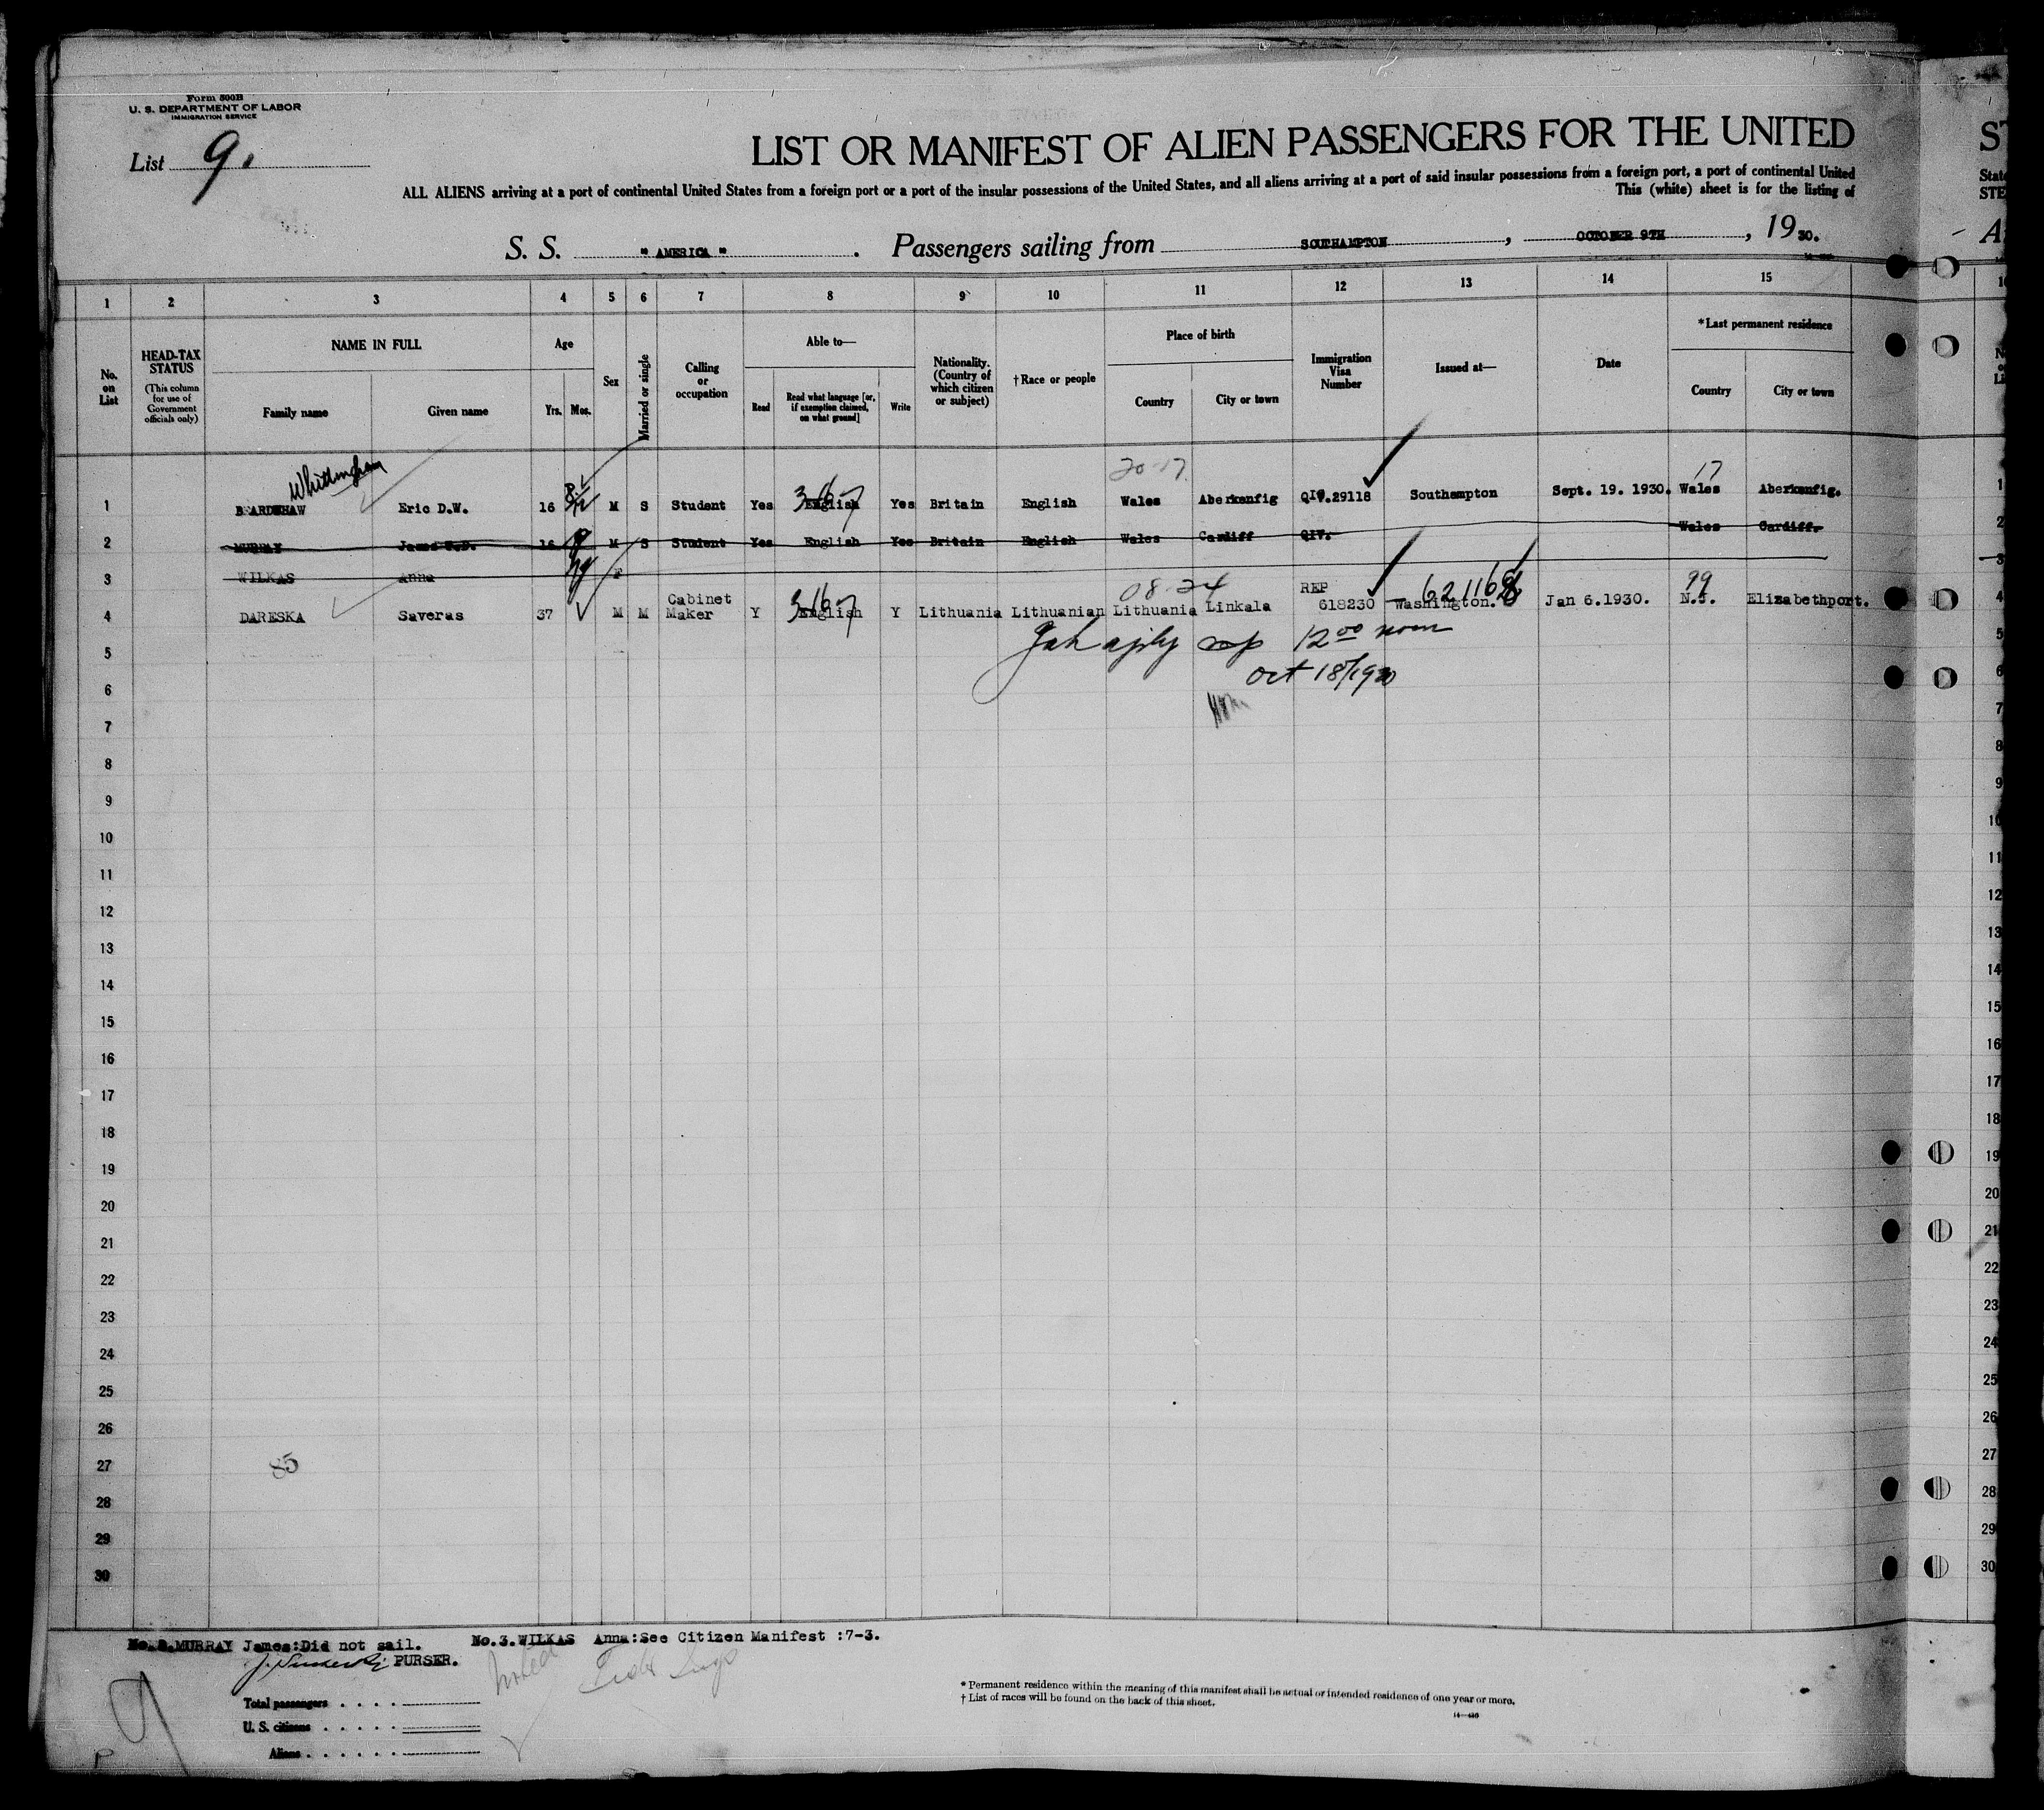 Form 500B
U. S. DEPARTMENT OF LABOR
IMMIGRATION SERVICE
List 9.
LIST OR MANIFEST OF ALIEN PASSENGERS FOR THE UNITED
ST
ALL ALIENS arriving at a port of continental United States from a foreign port or a port of the insular possessions of the United States, and all aliens arriving at a port of said insular possessions from a foreign port, a port of continental United
State
This (white) sheet is for the listing of
STE
S. S. " AMERICA " . Passengers sailing from SOUTHAMPTON , OCTOBER 9TH , 19 30.
A
1 2 3 4 5 6 7 8 9 10 11 12 13 14 15
No. on List
HEAD-TAX STATUS
(This column for use of Government officials only)
NAME IN FULL
Family name Given name
Age
Yrs. Mos.
Sex
Married or single
Calling or occupation
Able to—
Read
Read what language [or, if exemption claimed, on what ground]
Write
Nationality. (Country of which citizen or subject)
†Race or people
Place of birth
Country City or town
Immigration Visa Number
Issued at—
Date
*Last permanent residence
Country City or town
Whittingham 20-17 17
1 BEARDSHAW Eric D.W. 16 M S Student Yes English Yes Britain English Wales Aberkenfig QIV.29118 Southampton Sept. 19. 1930. Wales Aberkenfig.
2 MURRAY James 16 M S Student Yes English Yes Britain English Wales Cardiff QIV. Wales Cardiff.
3 WILKAS Anna F
08-24 REP 99
4 DARESKA Saveras 37 M M Cabinet Maker Y English Y Lithuania Lithuanian Lithuania Linkala 618230 Washington. Jan 6.1930. N.J. Elizabethport.
5 12 00 noon
6 Oct 18/1930
7
8
9
10
11
12
13
14
15
16
17
18
19
20
21
22
23
24
25
26
27 85
28
29
30
MURRAY James:Did not sail. No.3.WILKAS Anna:See Citizen Manifest :7-3.
PURSER.
Total passengers
U. S. citizens
Aliens
9
P
* Permanent residence within the meaning of this manifest shall be actual or intended residence of one year or more.
† List of races will be found on the back of this sheet.